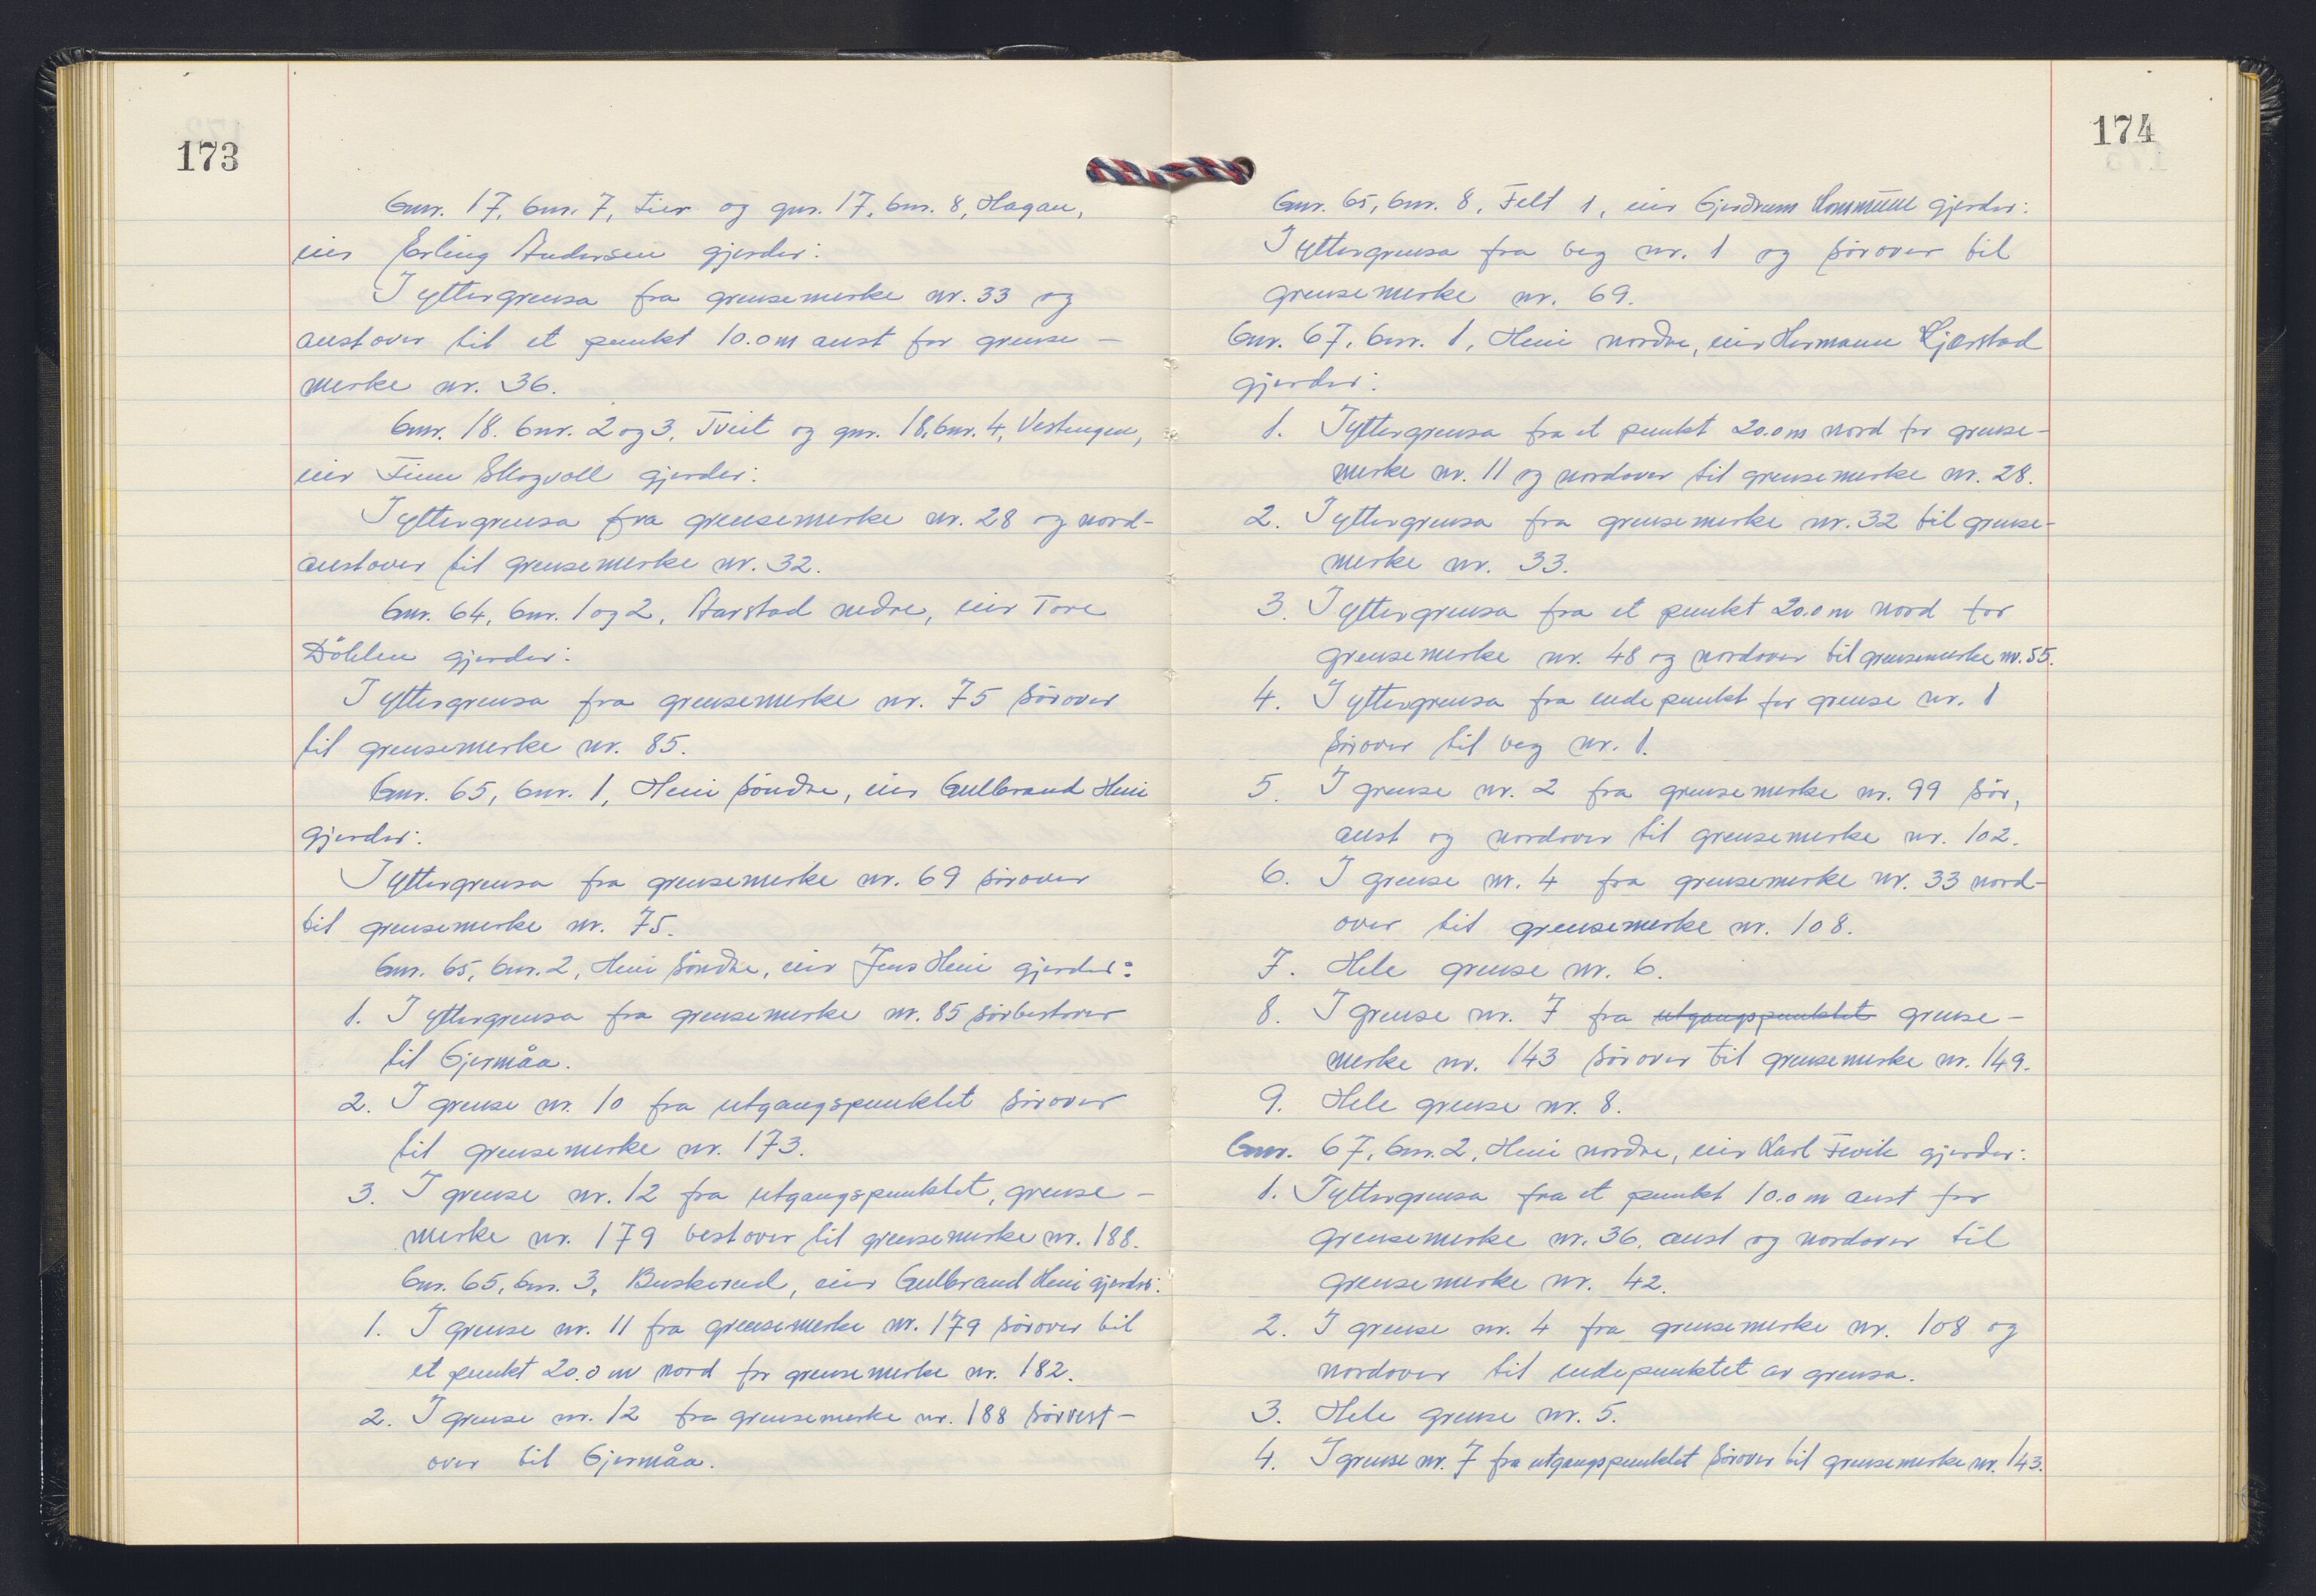 173
Gnr. 17, bnr. 7, Lier og gnr. 17, bnr. 8, Hagan,
eier Erling Andersen gjerder:
I yttergrensa fra grensemerke nr. 33 og
austover til et punkt 10.0 m aust for grense-
merke nr. 36.
Gnr. 18. bnr. 2 og 3, Tveit og gnr. 18, bnr. 4, Vestengen,
eier Finn Skogvoll gjerder:
I yttergrensa fra grensemerke nr. 28 og nord-
austover til grensemerke nr. 32.
Gnr. 64, bnr. 1 og 2, Aarstad nedre, eier Tore
Döhlen gjerder:
I yttergrensa fra grensemerke nr. 75 sörover
til grensemerke nr. 85.
Gnr. 65, bnr. 1, Heni söndre, eier Gulbrand Heni
gjerder:
I yttergrensa fra grensemerke nr. 69 sörover
til grensemerke nr. 75.
Gnr. 65, bnr. 2, Heni söndre, eier Jens Heni gjerder:
1. I yttergrensa fra grensemerke nr. 85 sörvestover
til Gjermåa.
2. I grense nr. 10 fra utgangspunktet sörover
til grensemerke nr. 173.
3. I grense nr. 12 fra utgangspunktet, grense-
merke nr. 179 vestover til grensemerke nr. 188.
Gnr. 65, bnr. 3, Buskerud, eier Gulbrand Heni gjerder:
1. I grense nr. 11 fra grensemerke nr. 179 sörover til
et punkt 20.0 m nord for grensemerke nr. 182.
2. I grense nr. 12 fra grensemerke nr. 188 sörvest-
over til Gjermåa.
174
Gnr. 65, bnr. 8, Felt 1, eier Gjerdrum Kommune gjerder:
I yttergrensa fra veg nr. 1 og sörover til
grensemerke nr. 69.
Gnr. 67, bnr. 1, Heni nordre, eier Hermann Kjærstad
gjerder:
1. I yttergrensa fra et punkt 20.0 m nord for grense-
merke nr. 11 og nordover til grensemerke nr. 28.
2. I yttergrensa fra grensemerke nr. 32 til grense-
merke nr. 33.
3. I yttergrensa fra et punkt 20.0 m nord for
grensemerke nr. 48 og nordover til grensemerke nr. 55.
4. I yttergrensa fra endepunkt for grense nr. 1
sörover til veg nr. 1.
5. I grense nr. 2 fra grensemerke nr. 99 sör,
aust og nordover til grensemerke nr. 102.
6. I grense nr. 4 fra grensemerke nr. 33 nord-
over til grensemerke nr. 108.
7. Hele grense nr. 6.
8. I grense nr. 7 fra utgangspunktet grense-
merke nr. 143 sörover til grensemerke nr. 149.
9. Hele grense nr. 8.
Gnr. 67, bnr. 2, Heni nordre, eier Karl Fevik gjerder:
1. I yttergrensa fra et punkt 10.0 m aust for
grensemerke nr. 36, aust og nordover til
grensemerke nr. 42.
2. I grense nr. 4 fra grensemerke nr. 108 og
nordover til endepunktet av grensa.
3. Hele grense nr. 5.
4. I grense nr. 7 fra utgangspunktet sörover til grensemerke nr. 143.